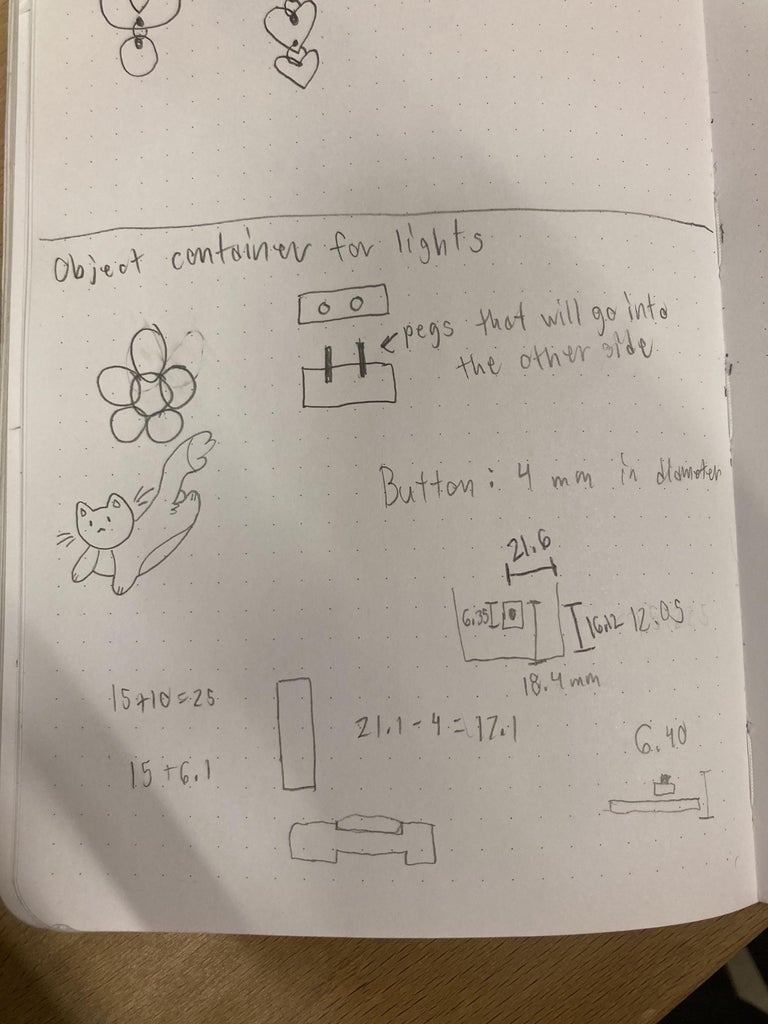 Object container for lights
pegs that will go into
the other side
Button: 4 mm in diameter
21.6
6.35
16.12 12.05
18.4 mm
15+10=25
21.1-4=17.1
15+6.1
6.40